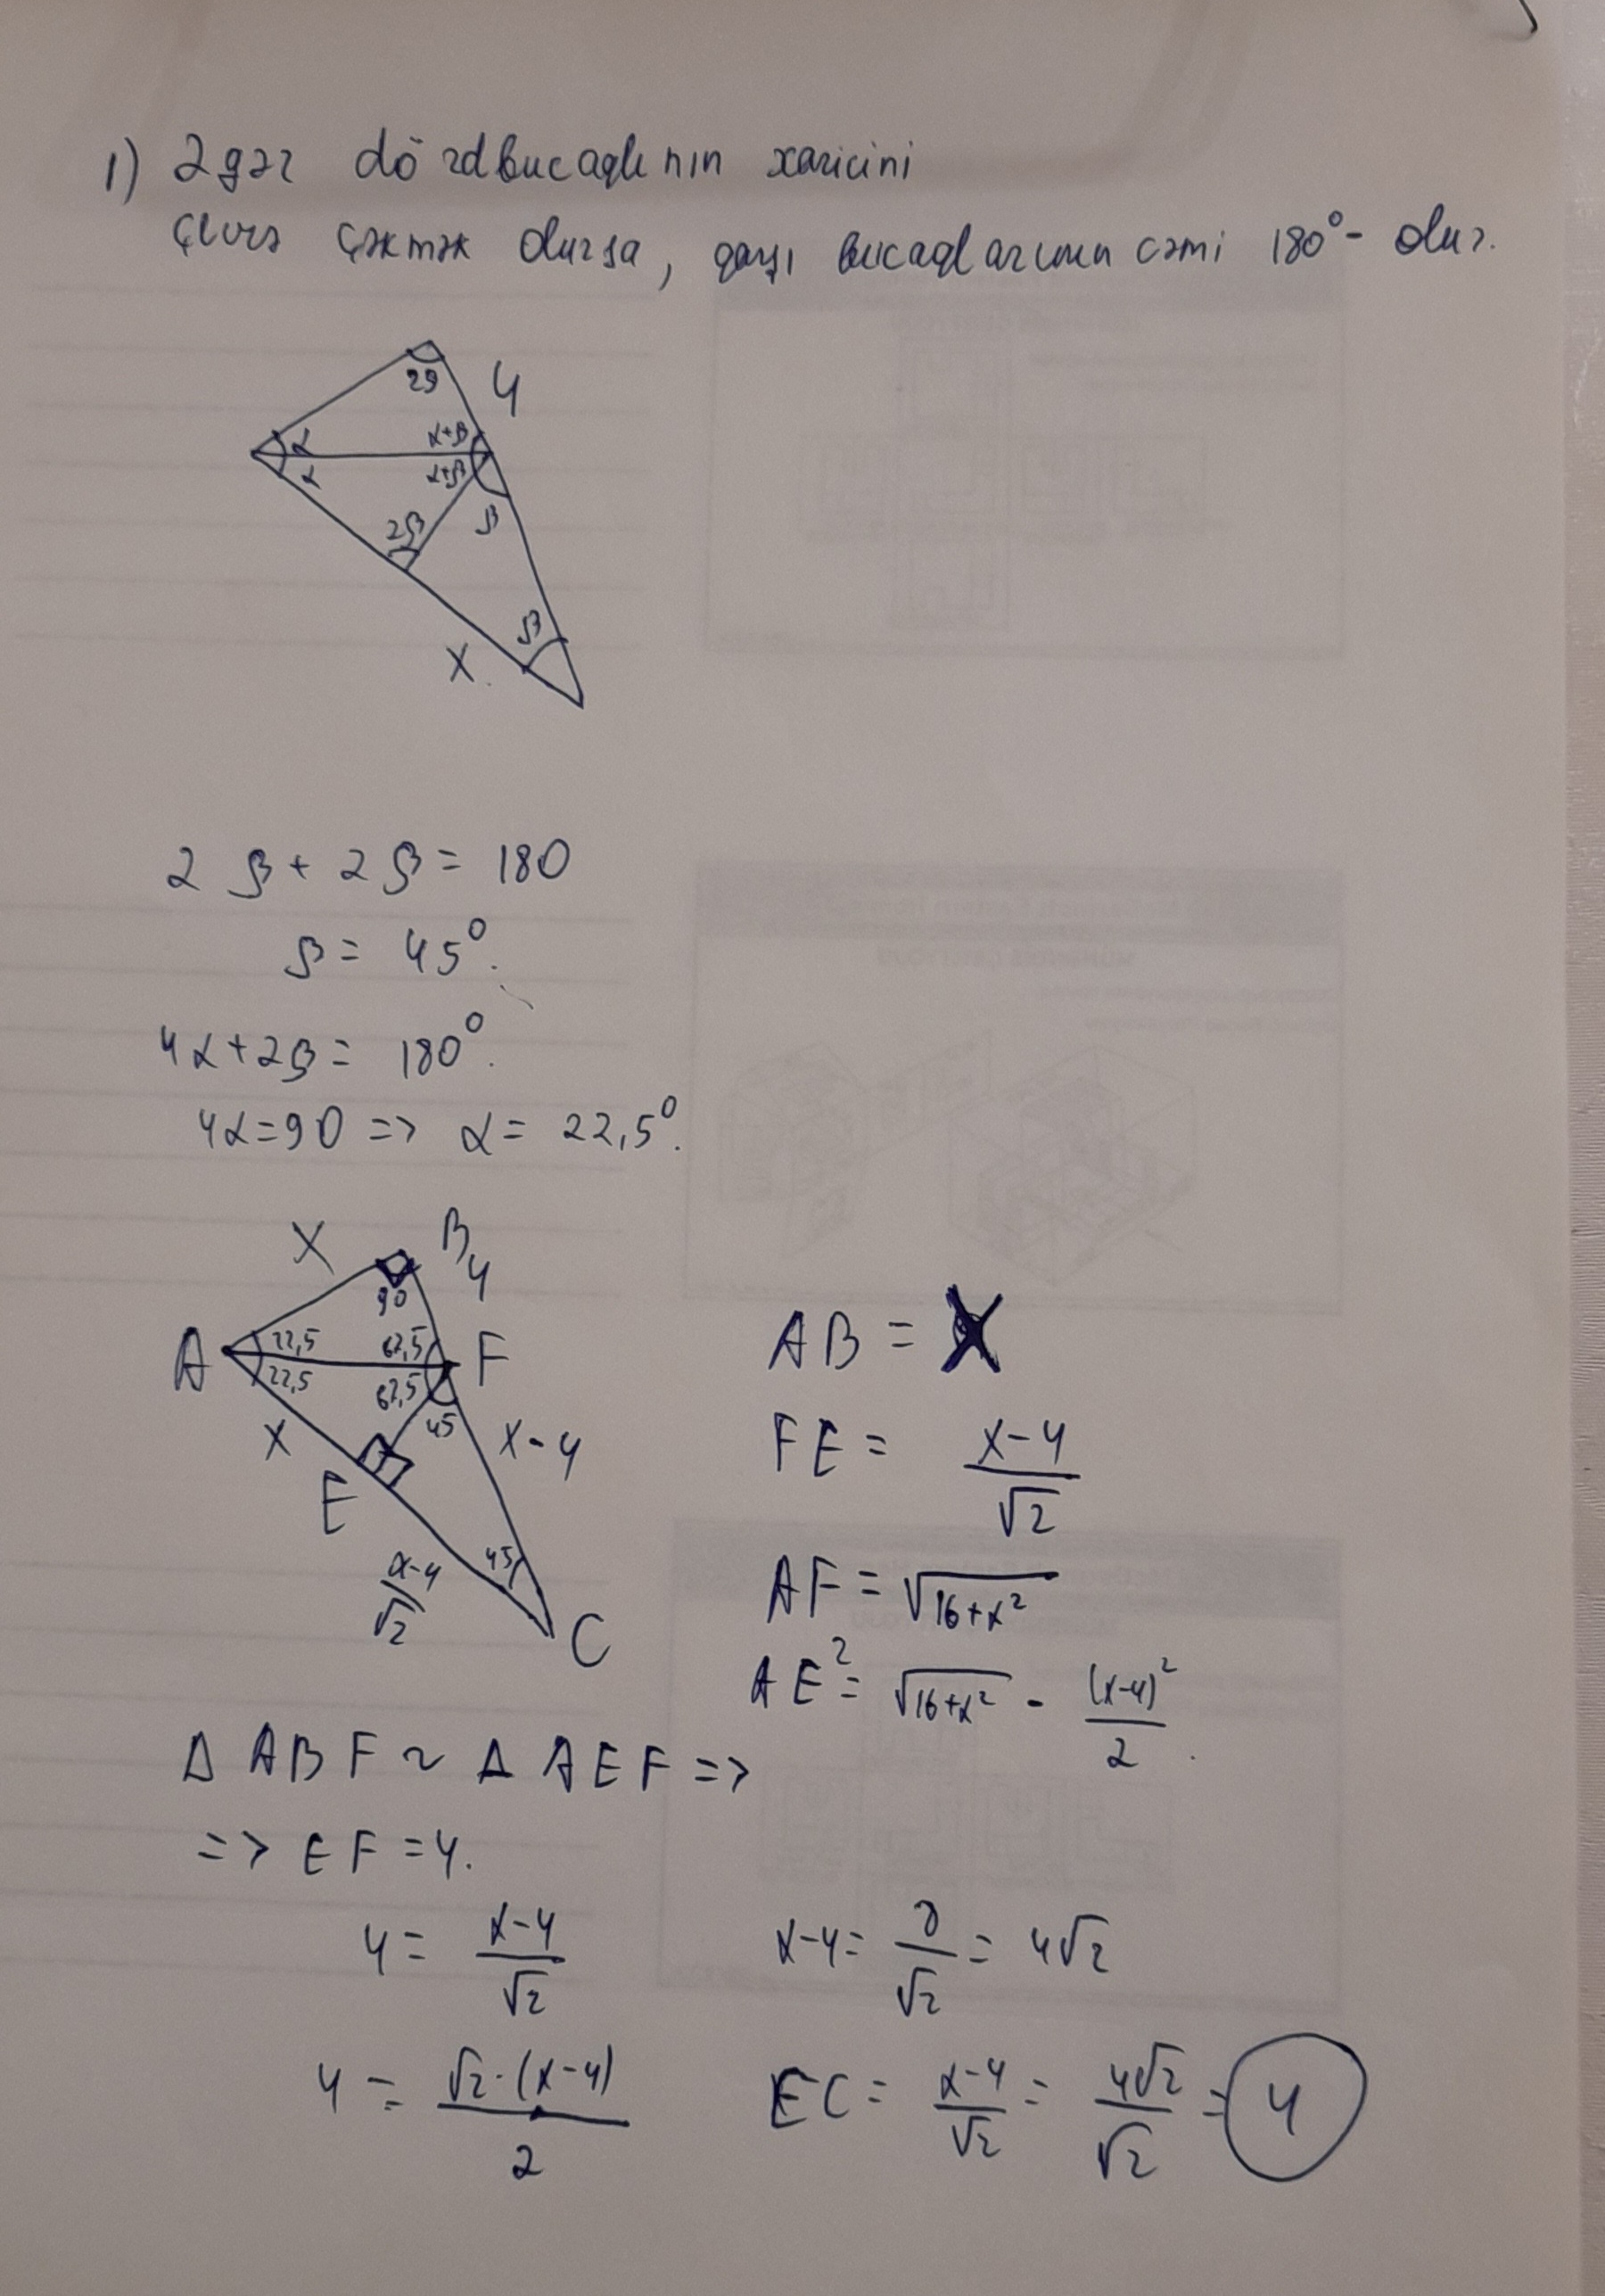 1) Əgər dördbucaqlının xaricinə
çevrə çəkmək olursa, qarşı bucaqlarının cəmi 180° - olur.
2β 4
α α+β
α α+β
2β β
β
X
2β + 2β = 180
β = 45°.
4α+2β = 180°.
4α=90 => α = 22,5°.
X B 4
90
A 22,5 67,5 F
22,5 67,5
X 45 X-4
E
x-4/√2 45
C
AB = X
FE = (x-4)/√2
AF = √(16+x²)
AE² = √(16+x²) - (x-4)²/2.
Δ ABF ~ Δ AEF =>
=> EF = 4.
4 = (x-4)/√2 x-4 = 8/√2 = 4√2
4 = √2·(x-4)/2 EC = (x-4)/√2 = 4√2/√2 = 4